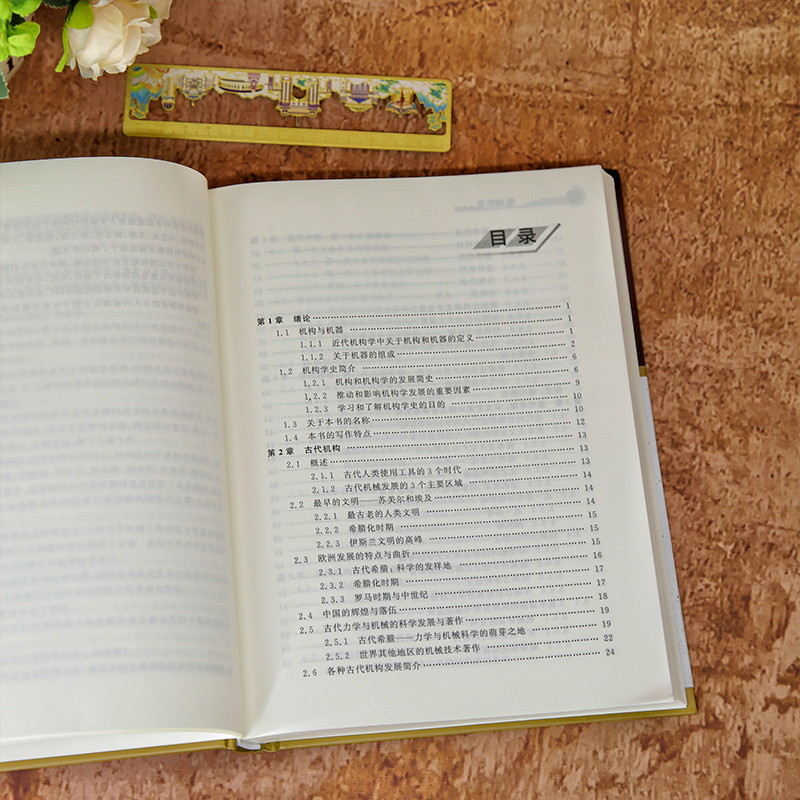 目 录
第1章 绪论 1
1.1 机构与机器 1
1.1.1 近代机构学中关于机构和机器的定义 1
1.1.2 关于机器的组成 2
1.2 机构学史简介 6
1.2.1 机构和机构学的发展简史 6
1.2.2 推动和影响机构学发展的重要因素 9
1.2.3 学习和了解机构学史的目的 10
1.3 关于本书的名称 10
1.4 本书的写作特点 12
第2章 古代机构 13
2.1 概述 13
2.1.1 古代人类使用工具的3个时代 13
2.1.2 古代机械发展的3个主要区域 14
2.2 最早的文明——苏美尔和埃及 14
2.2.1 最古老的人类文明 14
2.2.2 希腊化时期 15
2.2.3 伊斯兰文明的高峰 15
2.3 欧洲发展的特点与曲折 15
2.3.1 古代希腊：科学的发祥地 16
2.3.2 希腊化时期 17
2.3.3 罗马时期与中世纪 17
2.4 中国的辉煌与落伍 18
2.5 古代力学与机械的科学发展与著作 19
2.5.1 古代希腊——力学与机械科学的萌芽之地 19
2.5.2 世界其他地区的机械技术著作 22
2.6 各种古代机构发展简介 24